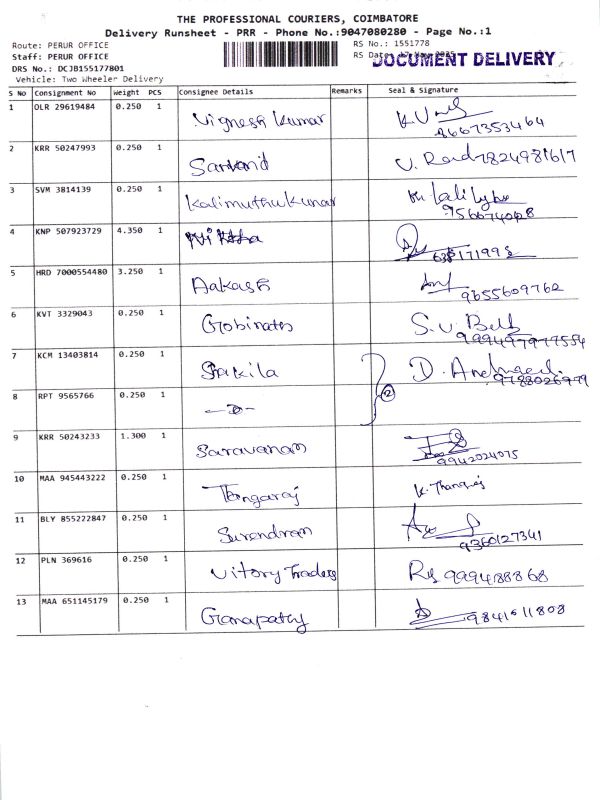 THE PROFESSIONAL COURIERS, COIMBATORE
Delivery Runsheet - PRR - Phone No.:9047080280 - Page No.:1
Route: PERUR OFFICE RS No.: 1551778
Staff: PERUR OFFICE RS Date: DOCUMENT DELIVERY
DRS No.: DCJB155177801
Vehicle: Two Wheeler Delivery
S No Consignment No Weight PCS Consignee Details Remarks Seal & Signature
1 OLR 29619484 0.250 1 Vignesh Kumar 8667353464
2 KRR 50247993 0.250 1 7824981617
3 SVM 3814139 0.250 1 Kalimuthukumar
4 KNP 507923729 4.350 1
5 HRD 7000554480 3.250 1 Aakash 9655609762
6 KVT 3329043 0.250 1 Gobinath
7 KCM 13403814 0.250 1 Shakila D. 9788026979
8 RPT 9565766 0.250 1 2
9 KRR 50243233 1.300 1 Saravanan 9942024075
10 MAA 945443222 0.250 1 Tangaraj K. Thangaraj
11 BLY 855222847 0.250 1 Surendran 9360127341
12 PLN 369616 0.250 1 Vitory Traders
13 MAA 651145179 0.250 1 Ganapathy 9841611808